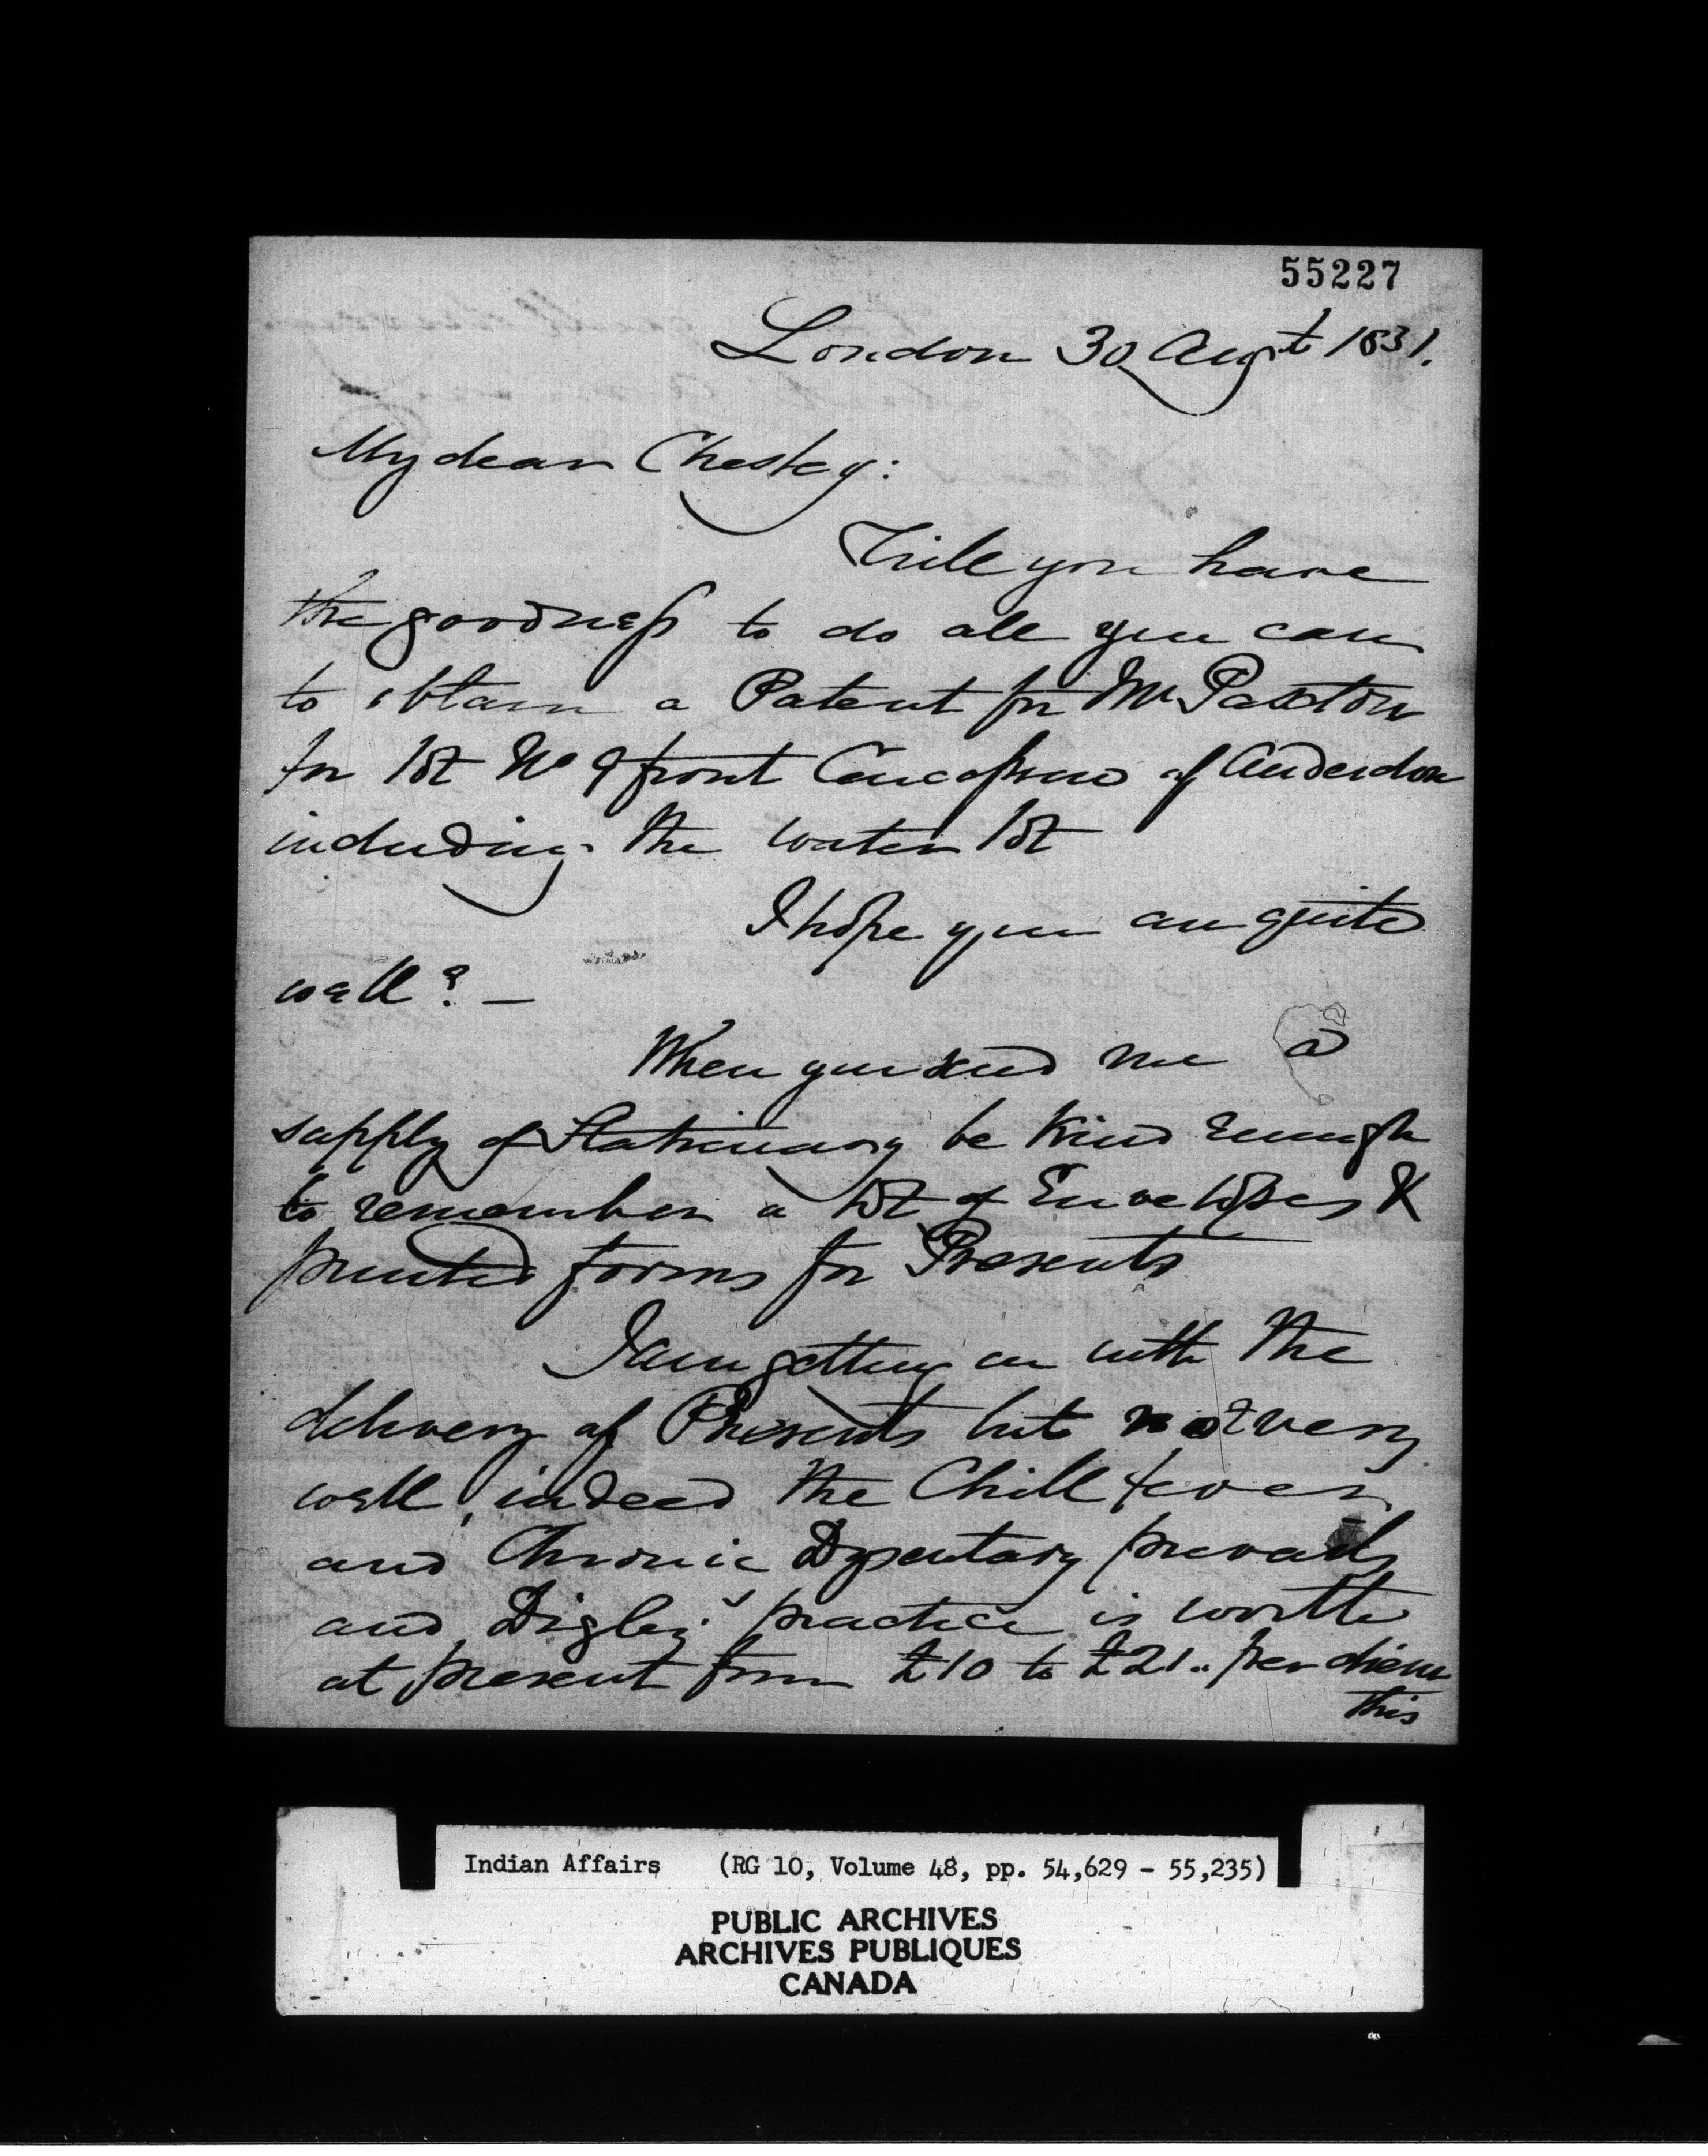 55227
London 30 Augt 1831.
My dear Chesley:
Will you have
the goodness to do all you can
to obtain a Patent for Mr Paxton
for lot No 9 front Concession of Anderdon
including the water lot
I hope you are quite
well? —
When you send me a
supply of Stationary be kind enough
to remember a lot of Envelopes &
printed forms for Presents
I am getting on with the
delivery of Presents but not very
well, indeed the Chill fever
and Chronic Dysentary prevails
and Digby's practice is worth
at present from £10 to £21.. per diem
this
Indian Affairs (RG 10, Volume 48, pp. 54,629 - 55,235)
PUBLIC ARCHIVES
ARCHIVES PUBLIQUES
CANADA